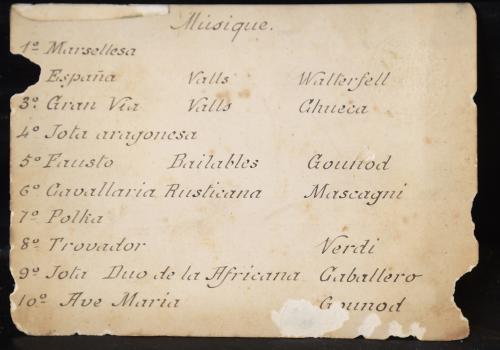 Músique.
1º Marsellesa
España Valls Walterfell
3º. Gran Vía Valls Chueca
4º Jota aragonesa
5º Fausto Bailables Gounod
6º Cavallaria Rusticana Mascagni
7º Polka
8º Trovador Verdi
9º Jota Duo de la Africana Caballero
10º. Ave Maria Gounod